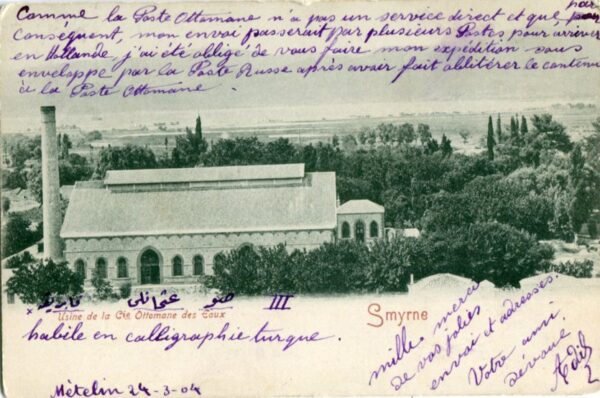 Comme la Poste Ottomane n'a pas un service direct et que, par
conséquent, mon envoi passerait par plusieurs Postes pour arriver
en Hollande j'ai été obligé de vous faire mon expédition sous
enveloppe par la Poste Russe après avoir fait oblitérer le contenu
à la Poste Ottomane.
صو عثمانلى فابريقه III
Usine de la Cie Ottomane des Eaux
Smyrne
habile en calligraphie turque.
Mételin 24-3-04
mille merci
de vos jolies
envoi et adresses.
Votre ami
dévoué